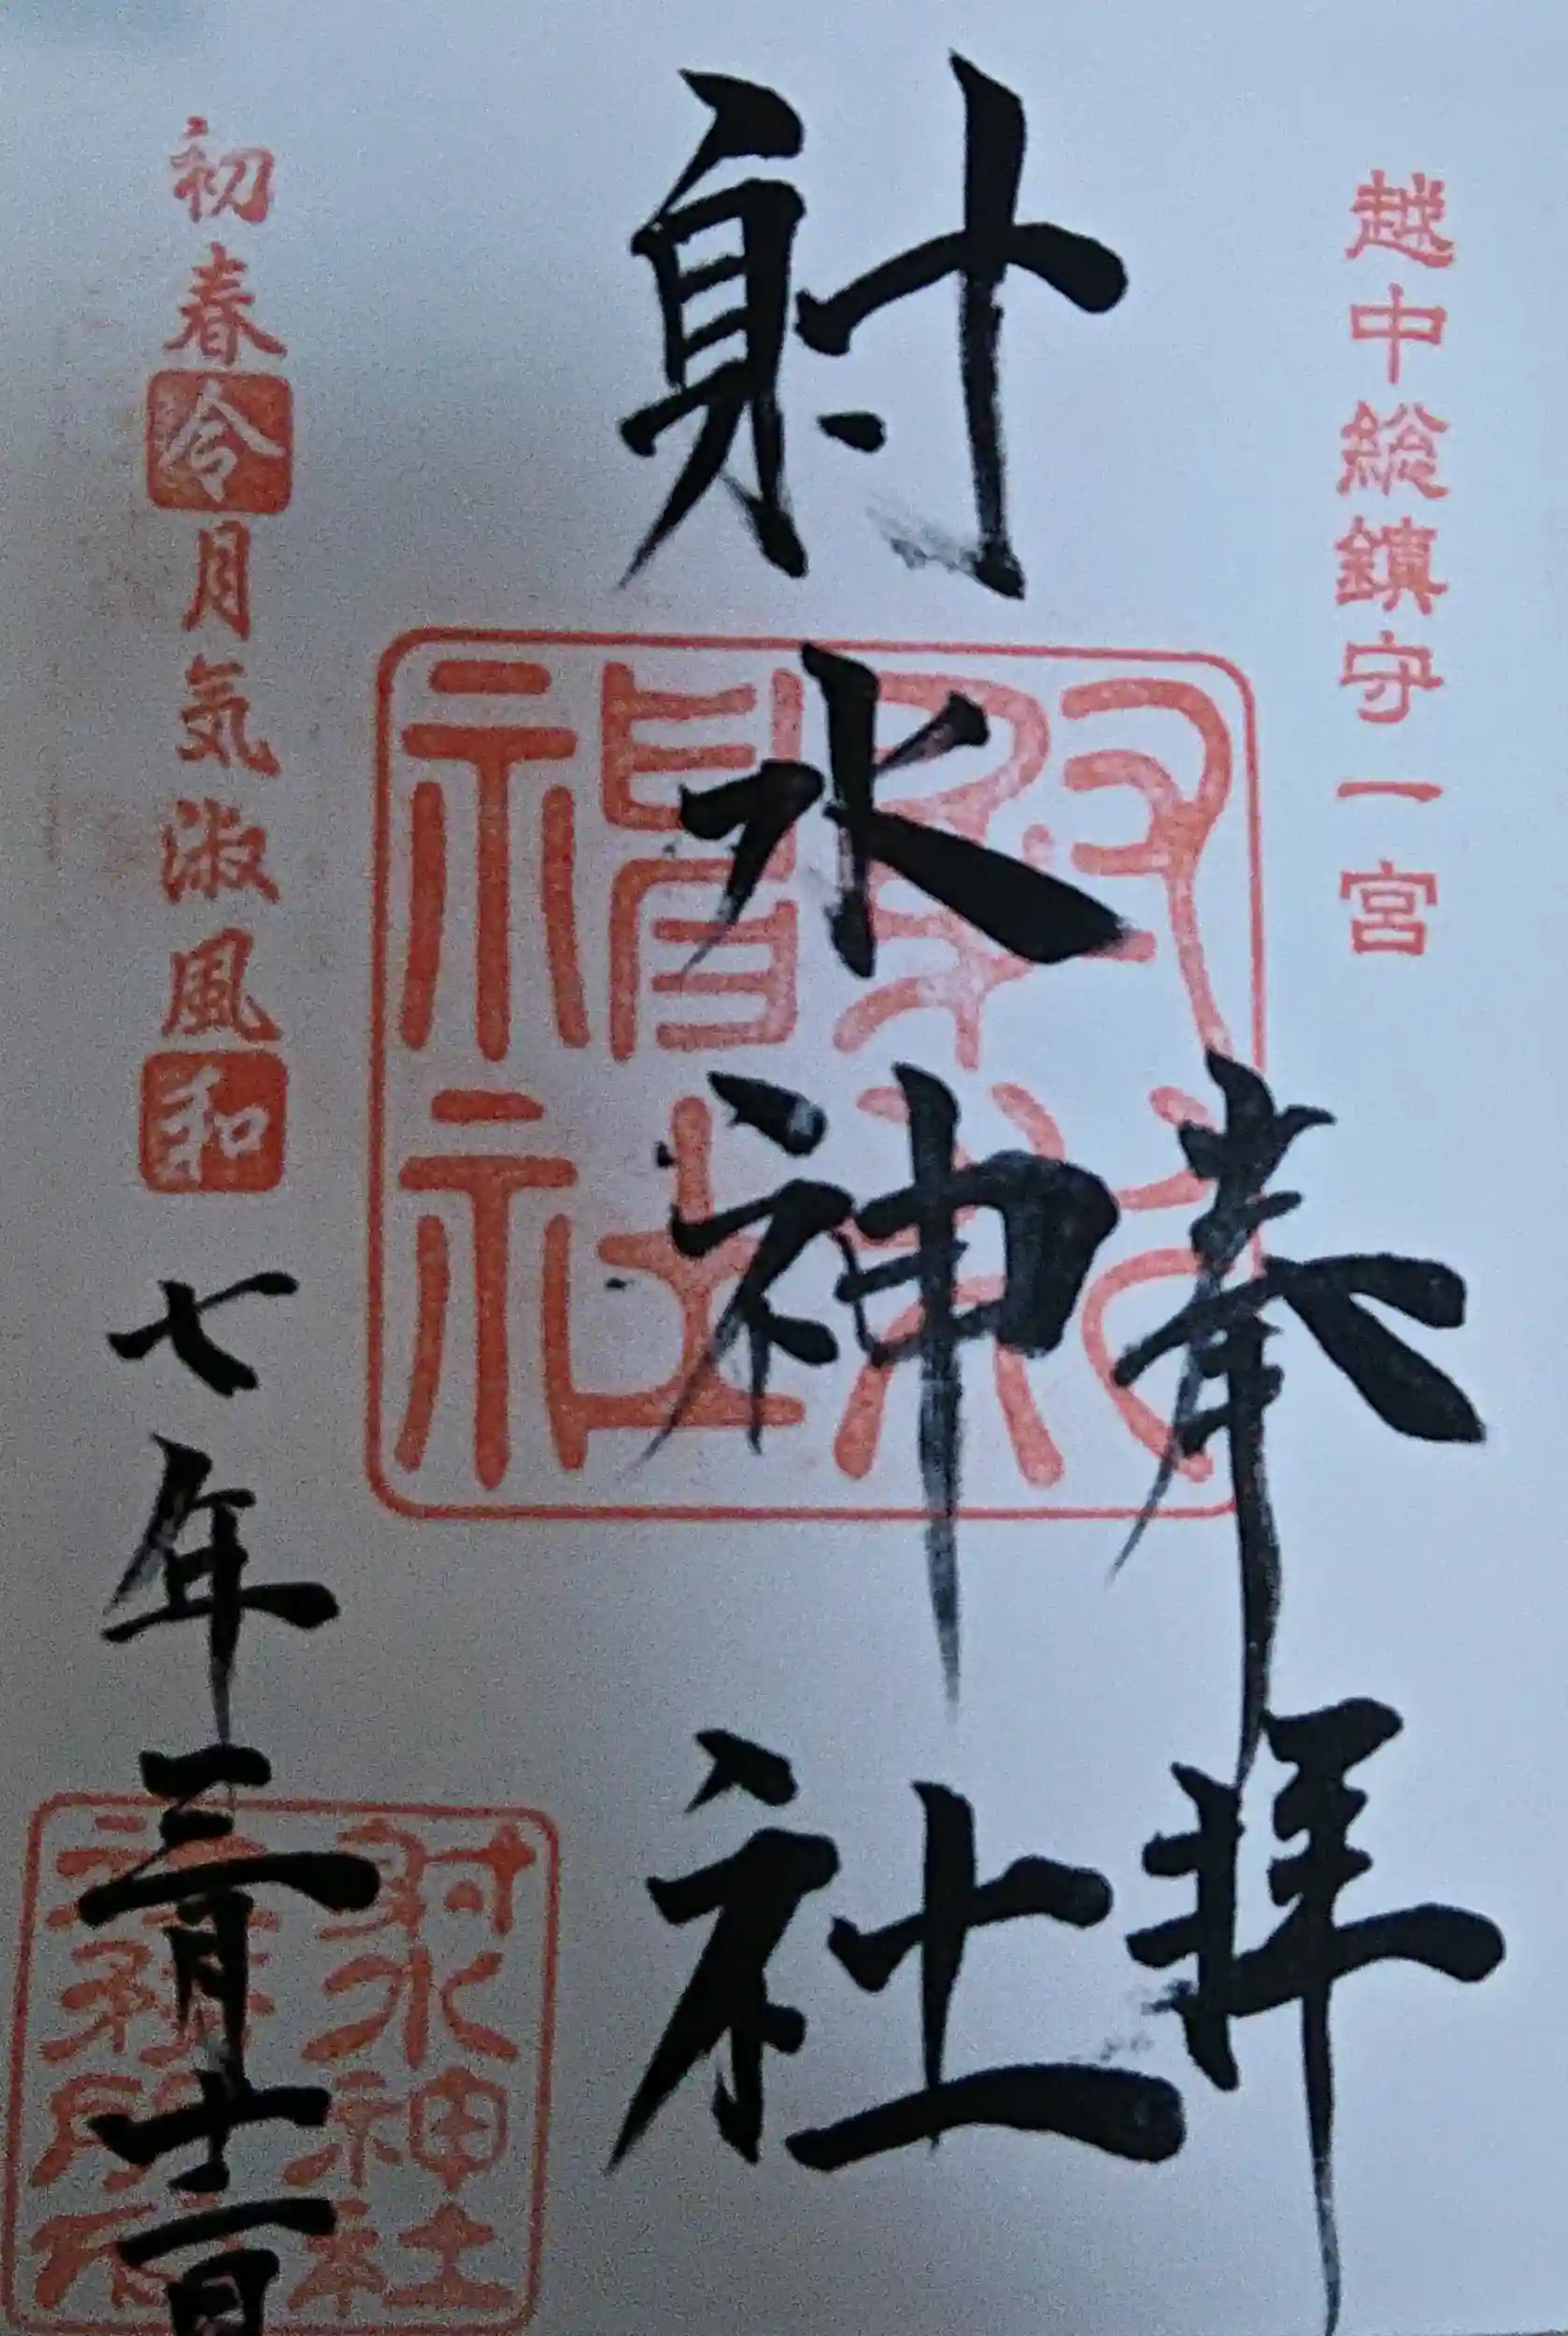 越中総鎮守一宮
奉拝
射水神社
射水神社
初春令月気淑風和
七年三月十二日
射水神社